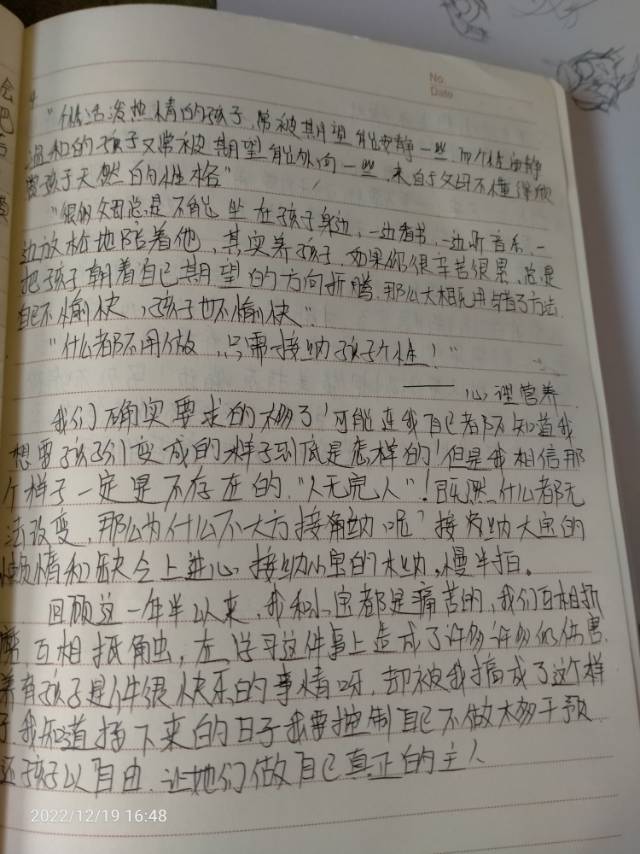 No.
Date
"个性活泼热情的孩子,常被期望能安静一些,而个性安静
温和的孩子又常被期望能外向一些,来自于父母不懂得欣
赏孩子天然的性格"
"很多父母总是不能坐在孩子身边,一边看书,一边听音乐,一
边放松地陪着他,其实养孩子,如果你很辛苦很累,总是
把孩子朝着自己期望的方向折腾,那么大概是用错了方法
自己不愉快,孩子也不愉快".
"什么都不用做,只需接纳孩子个性!"
——心理营养
我们确实要求的太多了!可能连我自己都不知道我
想要孩子们变成的样子到底是怎样的!但是我相信那
个样子一定是不存在的."人无完人"!既然什么都无
法改变,那么为什么不大方接纳呢?接纳大宝的
懒惰和缺乏上进心,接纳小宝的木纳,慢半拍。
回顾这一年半以来,我和小宝都是痛苦的,我们互相折
磨互相抵触,在学习这件事上造成了许多许多的伤害.
养育孩子是件很快乐的事情呀,却被我搞成了这个样
子.我知道接下来的日子我要控制自己不做太多干预
还孩子以自由.让她们做自己真正的主人
2022/12/19 16:48